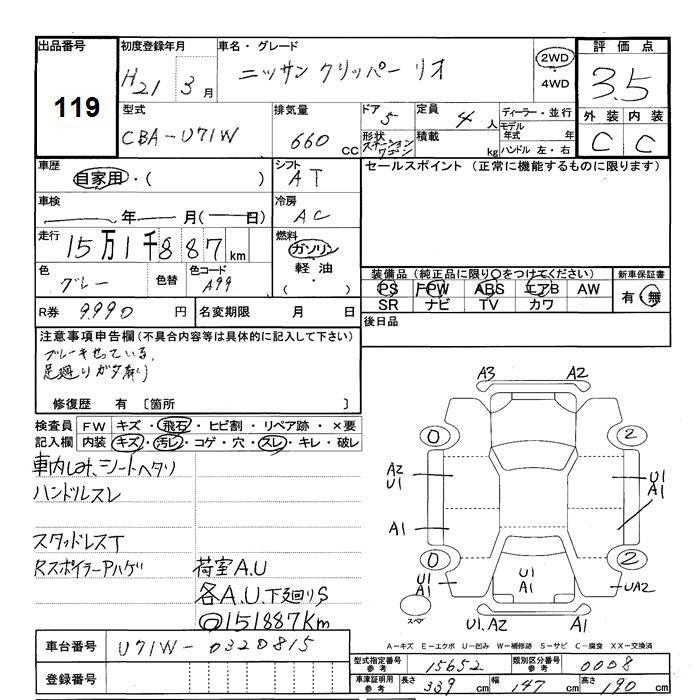 出品番号 初度登録年月 車名・グレード 評価点
119 H21 3月 ニッサン クリッパー リオ 2WD 4WD 3.5
型式 排気量 ドア 定員 ディーラー・並行 外装 内装
CBA-U71W 660 CC 5 4人 モデル年式 年 C C
形状 ステーションワゴン 積載 kg ハンドル 左・右
車歴 シフト セールスポイント (正常に機能するものに限ります)
自家用・( ) AT
車検 冷房
年 月(ー日) AC
走行 燃料
15万1千887km ガソリン
色 色替 色コード 軽油
グレー A99 ( ・ )
装備品(純正品に限り○をつけてください) 新車保証書
PS FPW ABS エアB AW 有・無
SR ナビ TV カワ
R券 9990円 名変期限 月 日
後日品
注意事項申告欄(不具合内容等は具体的に記入して下さい)
ブレーキせっている、
足廻りガタ有り
修復歴 有 〔箇所 〕
検査員 FW キズ・飛石・ヒビ割・リペア跡・×要
記入欄 内装 キズ・汚レ・コゲ・穴・スレ・キレ・破レ
車内しみ、シートヘタリ
ハンドルスレ
スタッドレスT
Rスポイラーアハゲ 荷室A.U
各A.U.下廻りS
◎151887Km
A3 A2
0 2
A2 U1 U1 A1
A1
0 2
U1 A1 U1 A1 UA2
スペア U1.A2 A1
A-キズ E-エクボ U-凹み W-補修跡 S-サビ C-腐食 XX-交換済
車台番号 U71W-0320815
登録番号
型式指定番号 参考 15652 類別区分番号 参考 0008
車庫証明用 参考 長さ 339 cm 幅 147 cm 高さ 190 cm